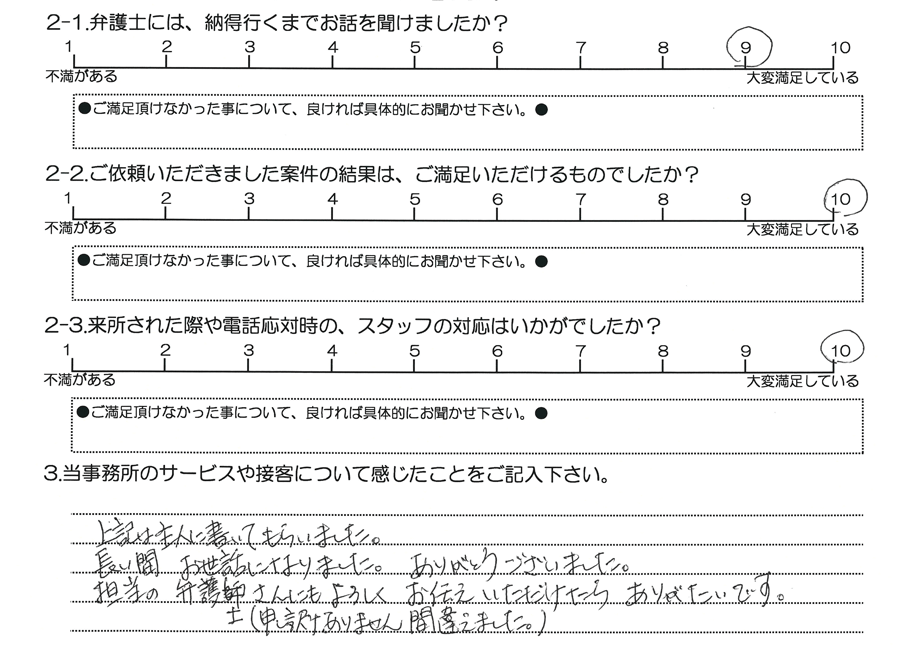 2-1.弁護士には、納得行くまでお話を聞けましたか？
1 2 3 4 5 6 7 8 9 10
不満がある 大変満足している
●ご満足頂けなかった事について、良ければ具体的にお聞かせ下さい。●
2-2.ご依頼いただきました案件の結果は、ご満足いただけるものでしたか？
1 2 3 4 5 6 7 8 9 10
不満がある 大変満足している
●ご満足頂けなかった事について、良ければ具体的にお聞かせ下さい。●
2-3.来所された際や電話応対時の、スタッフの対応はいかがでしたか？
1 2 3 4 5 6 7 8 9 10
不満がある 大変満足している
●ご満足頂けなかった事について、良ければ具体的にお聞かせ下さい。●
3.当事務所のサービスや接客について感じたことをご記入下さい。
上記は主人に書いてもらいました。
長い間 お世話になりました。 ありがとうございました。
担当の 弁護師さんにもよろしく お伝えいただけたら ありがたいです。
士(申し訳ありません 間違えました。)